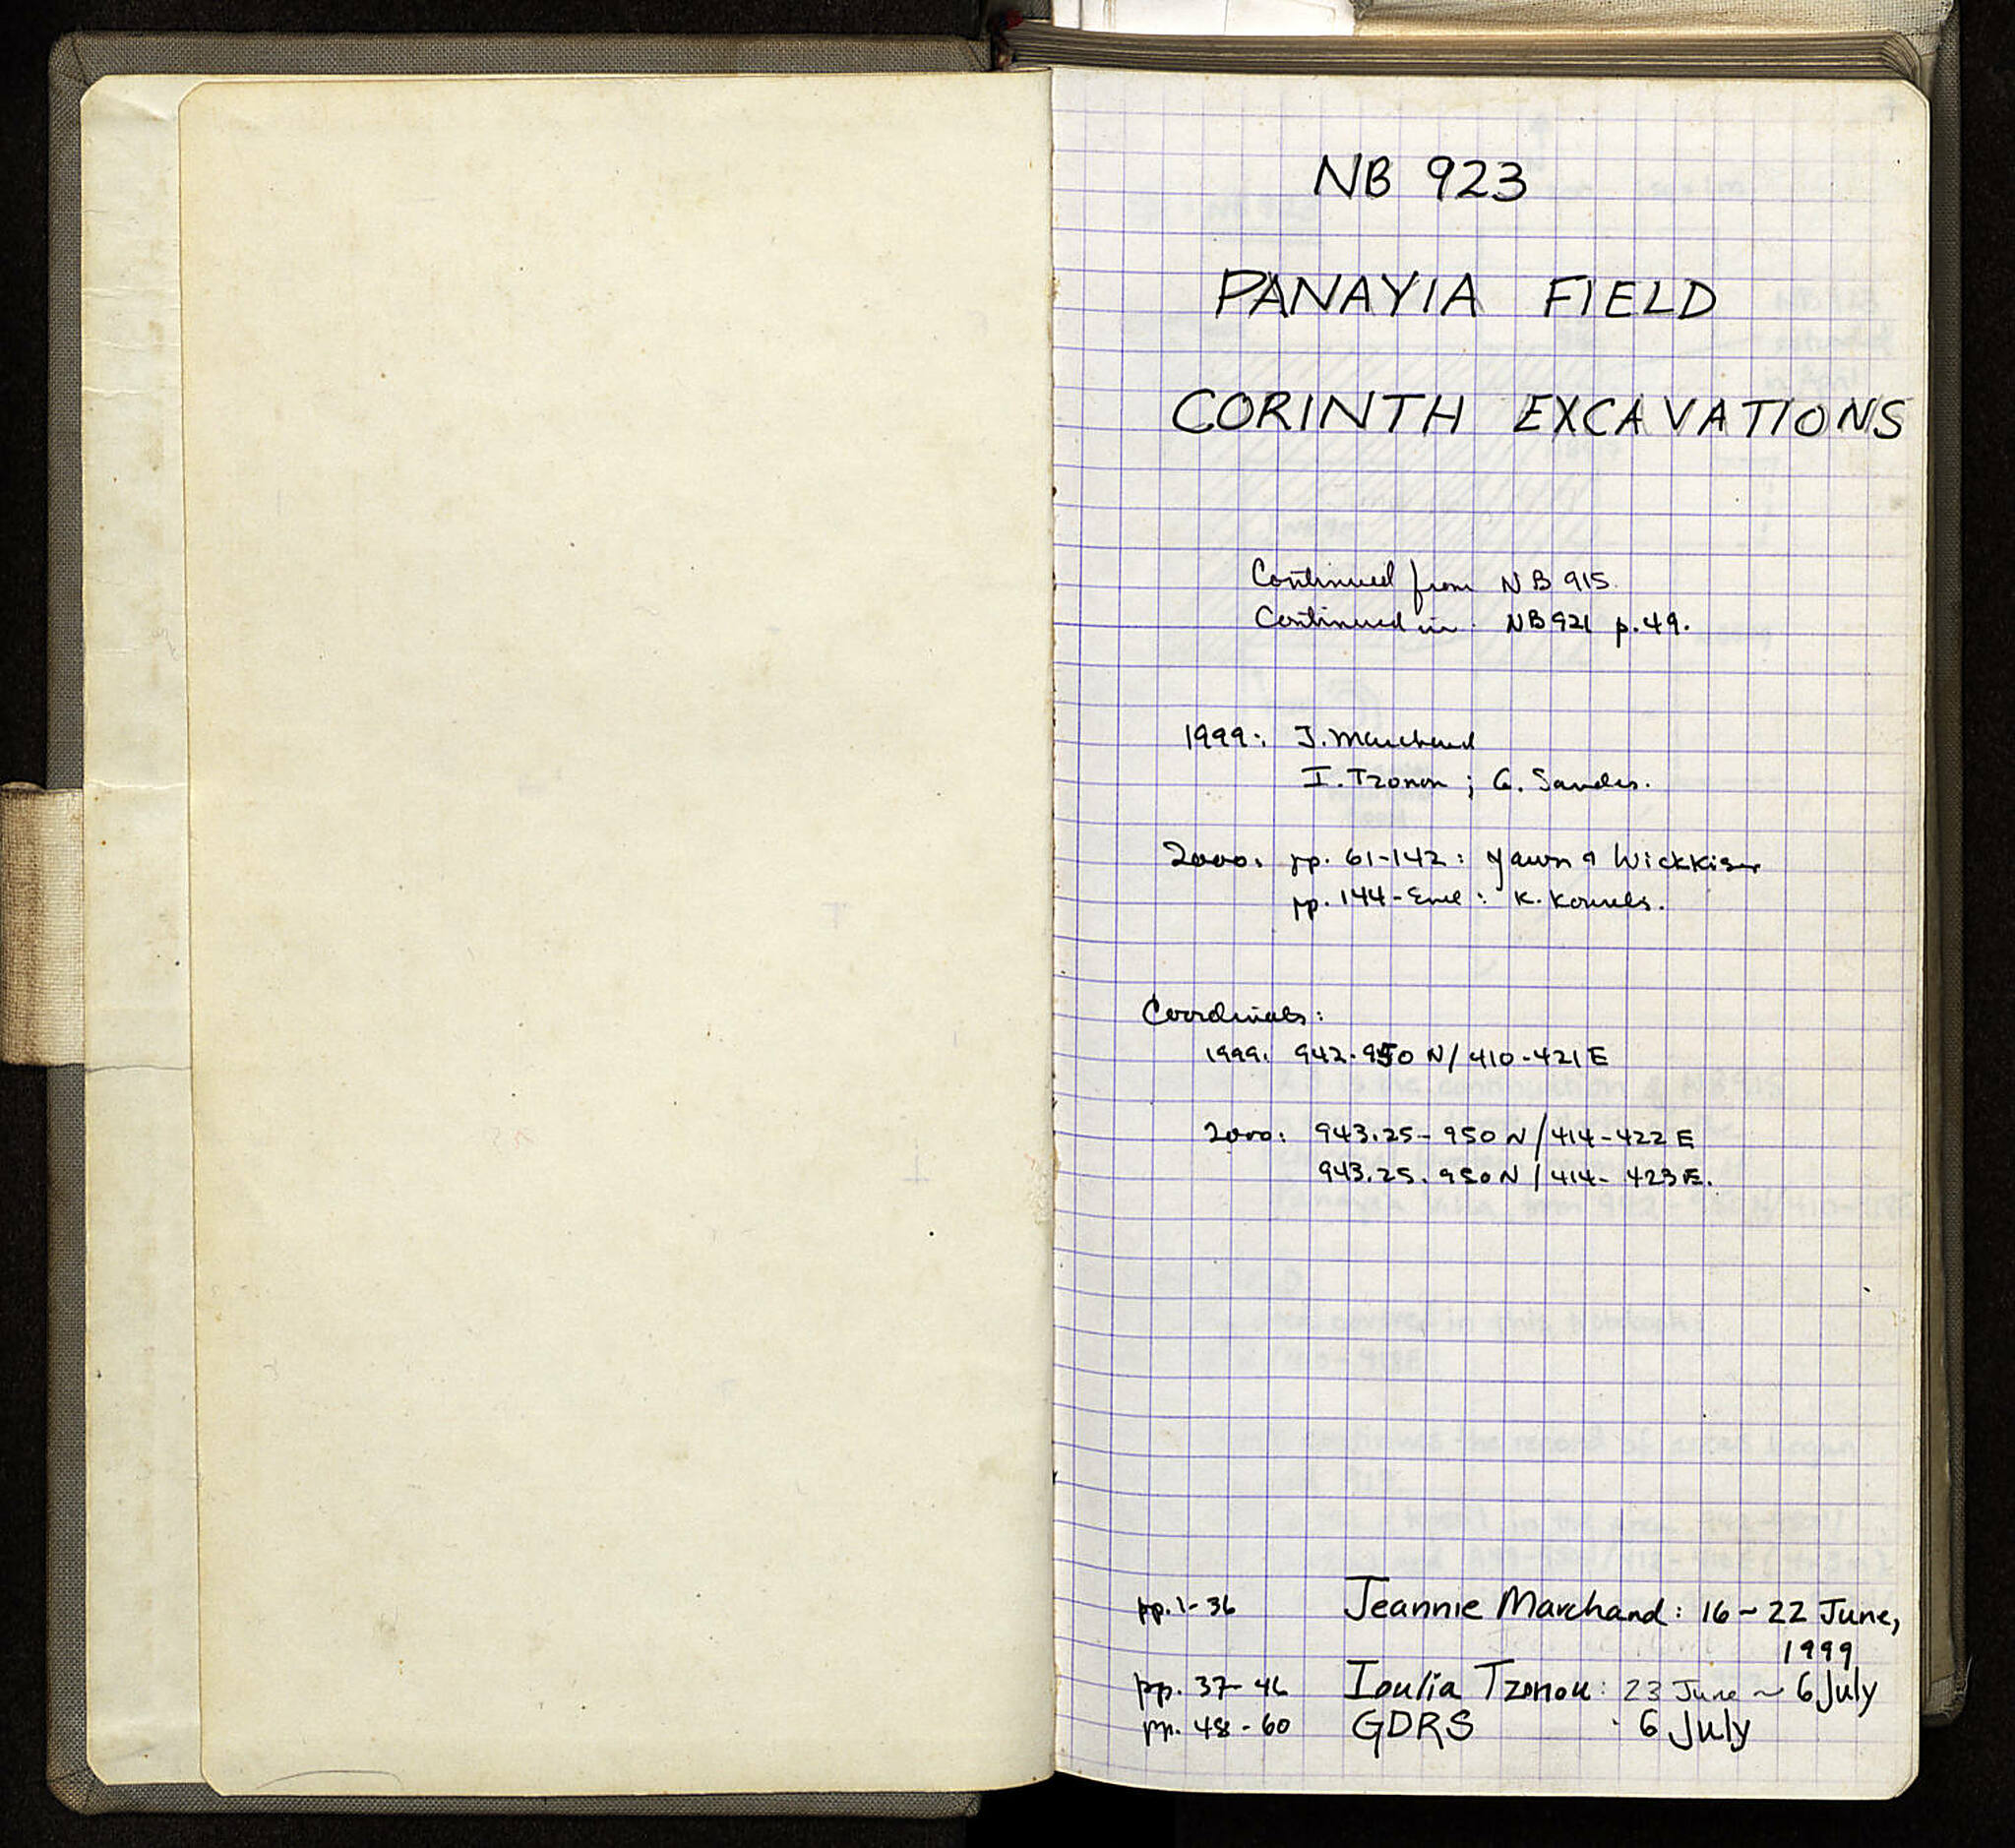 NB 923
PANAYIA FIELD
CORINTH EXCAVATIONS
Continued from NB 915.
Continued in NB 921 p.49.
1999: J. Marchand
I. Tzonou ; G. Sanders.
2000: pp. 61-142: Yawn & Wickkiser
pp. 144-End: K.
Coordinates:
1999: 942-950 N/ 410-421 E
2000: 943.25-950 N/414-422 E
943.25-950N/414-423E.
pp. 1-36 Jeannie Marchand: 16-22 June,
1999
pp. 37-46 Ioulia Tzonou: 23 June ~ 6 July
pp. 48-60 GDRS 6 July